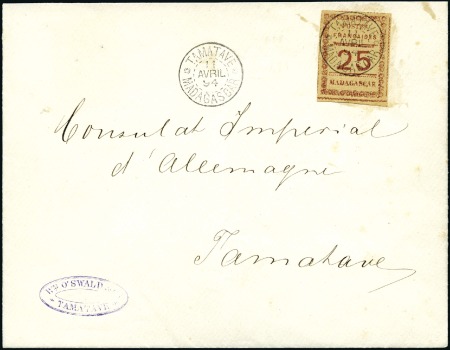 TAMATAVE
11
AVRIL
94
MADAGASCAR
POSTES
FRANÇAISES
AVRIL
25
MADAGASCAR
Consulat Imperial
d'Allemagne
Tamatave
O'SWALD
TAMATAVE